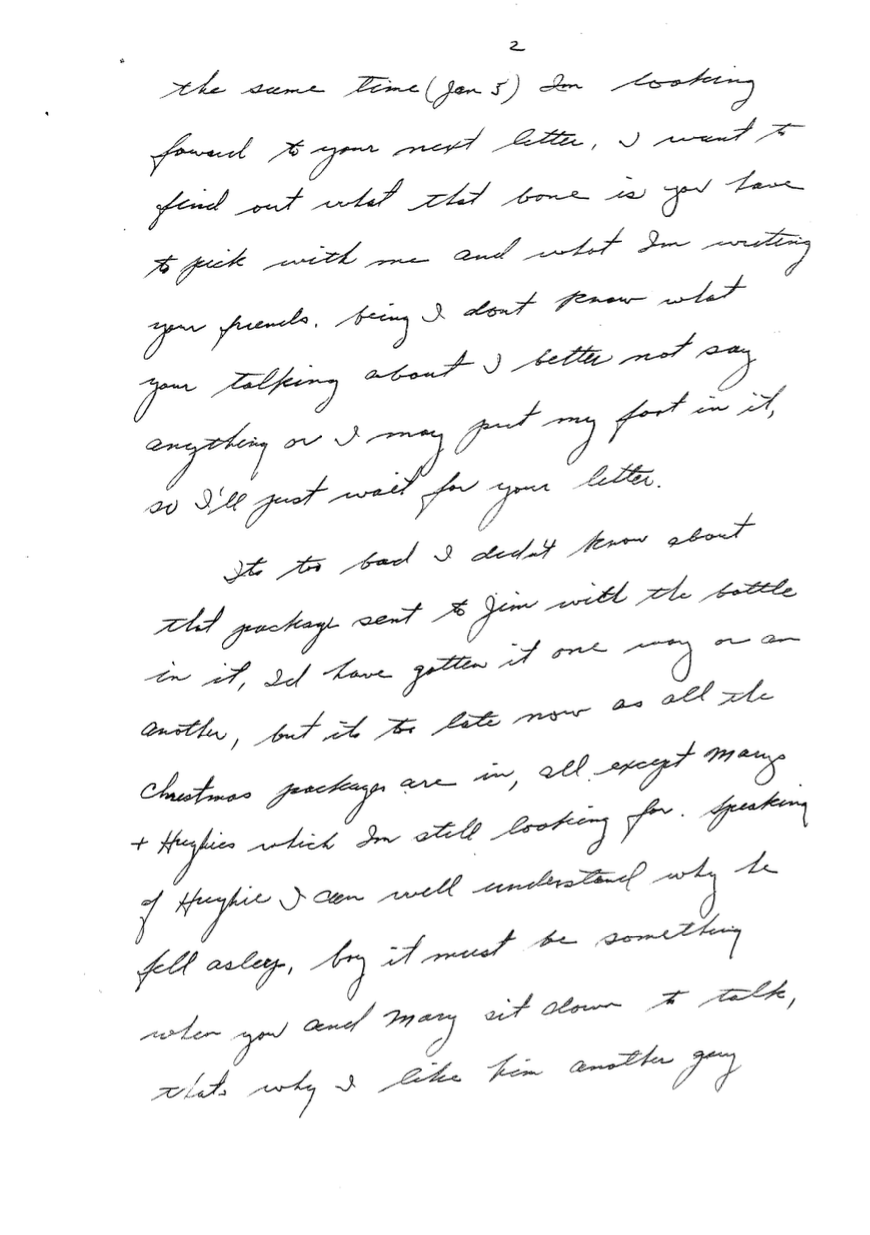 2
the same time (Jan 5) Im looking
foward to your next letter, I want to
find out what that bone is you have
to pick with me and what Im writing
your friends. being I dont know what
your talking about I better not say
anything or I may put my foot in it,
so I'll just wait for your letter.
Its too bad I didn't know about
that package sent to Jim with the bottle
in it, Id have gotten it one way or an
another, but its too late now as all the
Christmas packages are in, all except Marys
+ Hughies which Im still looking for. Speaking
of Hughie I can well understand why he
fell asleep, boy it must be something
when you and Mary sit down to talk,
thats why I like him another guy